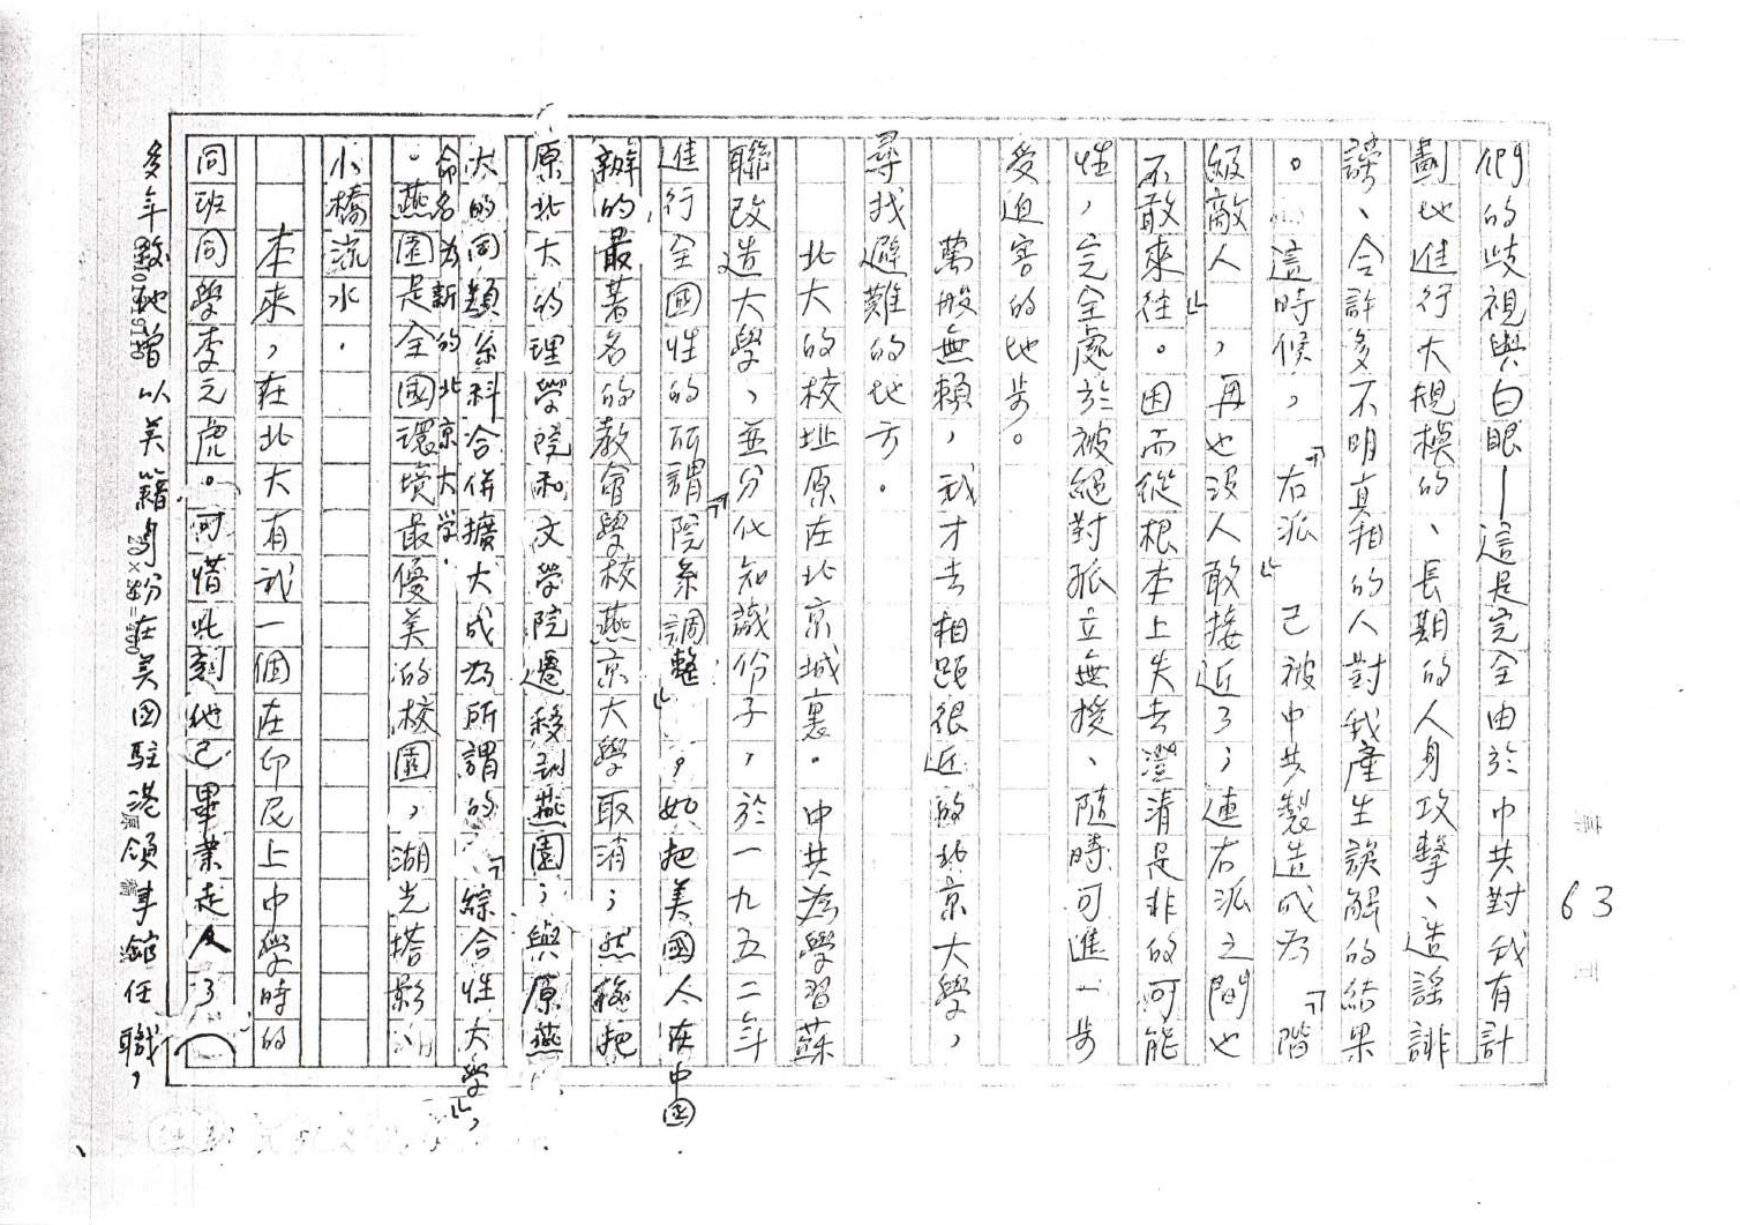 們的歧視與白眼—這是完全由於中共對我有計
劃地進行大規模的、長期的人身攻擊、造謠誹
謗、令許多不明真相的人對我產生誤解的結果
。這時候，『右派』已被中共製造成為『階
級敵人』，再也沒人敢接近了；連右派之間也
不敢來往。因而從根本上失去澄清是非的可能
性，完全處於被絕對孤立無援、隨時可進一步
受迫害的地步。
萬般無賴，我才去相距很近的北京大學，
尋找避難的地方。
北大的校址原在北京城裏。中共為學習蘇
聯改造大學、並分化知識份子，於一九五二年
進行全國性的所謂『院系調整』，如把美國人在中國
辦的最著名的教會學校燕京大學取消；然後把
原北大的理學院和文學院遷移到燕園；與原燕
大的同類系科合併擴大成為所謂的『綜合性大學』，
命名為新的北京大学.
。燕園是全國環境最優美的校園，湖光塔影、
小橋流水.
本來，在北大有我一個在印尼上中學時的
同班同學李元虎。(可惜此刻他已畢業走人了)
多年致 他曾以美籍身份在美国駐港領事館任職，
63
頁